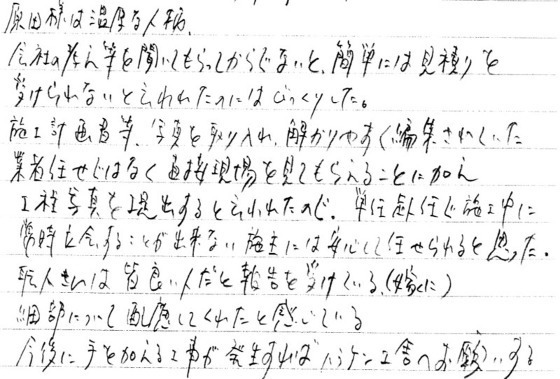 原田様は温厚な人柄、
会社の歩み等を聞いてもらってからでないと、簡単には見積りを
受けられないと言われたのにはびっくりした。
施工計画書等、写真を取り入れ、解かりやすく編集されていた
業者任せではなく直接現場を見てもらえることに加え
工程写真を提出すると言われたので、単身赴任で施工中に
常時立会することが出来ない施主には安心して任せられると思った。
職人さんは皆良い人だと報告を受けている。(嫁に)
細部について配慮してくれたと感じている
今後に手を加える工事が発生すればハラケン工舎へお願いする